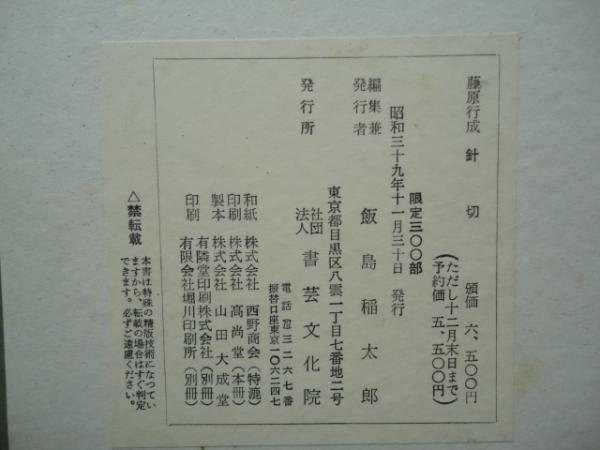 藤原行成 針切 頒価 六、五〇〇円
(ただし十二月末日まで
予約価 五、五〇〇円)
限定三〇〇部
昭和三十九年十一月三十日 発行
編集兼
発行者 飯島稲太郎
東京都目黒区八雲一丁目七番地二号
発行所 社団
法人 書芸文化院
三二六七番
振替口座東京一〇六二四七
和紙 株式会社 西野商会(特漉)
印刷 株式会社 高尚堂(本冊)
製本 株式会社 山田大成堂
有隣堂印刷株式会社(別冊)
印刷 有限会社堀川印刷所(別冊)
△禁転載
本書は特殊の精版技術になつてい
ますから、転載の場合はすぐ判定
できます。必ずご遠慮ください。